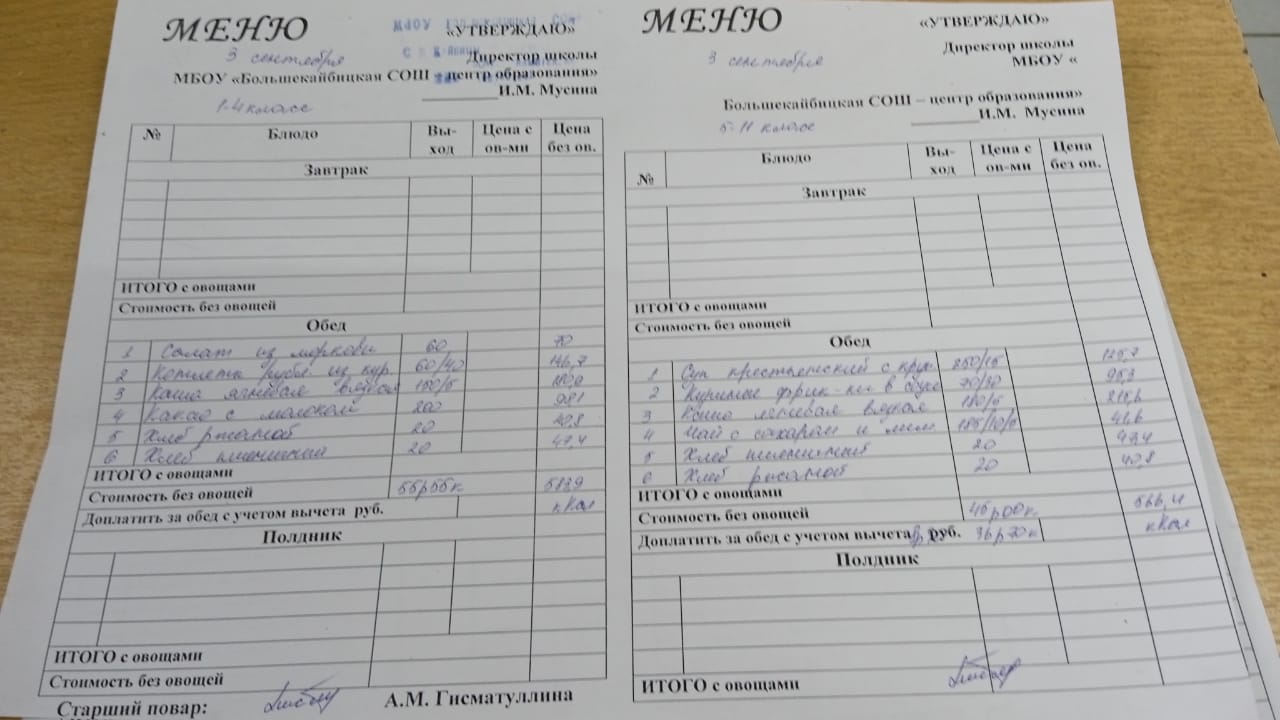 МЕНЮ
«УТВЕРЖДАЮ»
3 сентября
Директор школы
МБОУ «Большекайбицкая СОШ – центр образования»
И.М. Мусина
1-4 класс
№ Блюдо Вы-ход Цена с ов-ми Цена без ов.
Завтрак
ИТОГО с овощами
Стоимость без овощей
Обед
1 Салат из моркови 60 70
2 Котлета рубл из кур. 60/40 146,7
3 Каша ячневая вязкая 150/5
4 Какао с молоком 200
5 Хлеб ржаной 20 40,8
6 Хлеб пшеничный 20 47,4
ИТОГО с овощами
Стоимость без овощей 55р55к
Доплатить за обед с учетом вычета руб. кКал
Полдник
ИТОГО с овощами
Стоимость без овощей
Старший повар: А.М. Гисматуллина
МЕНЮ
«УТВЕРЖДАЮ»
3 сентября
Директор школы
МБОУ «
Большекайбицкая СОШ – центр образования»
И.М. Мусина
5-11 класс
№ Блюдо Вы-ход Цена с ов-ми Цена без ов.
Завтрак
ИТОГО с овощами
Стоимость без овощей
Обед
1 Суп крестьянский с круп. 250/15 125,7
2 Куриные фрик-ки в соусе 95,3
3 Каша ячневая вязкая 180/5 215,6
4 Чай с сахаром и лим 41,6
5 Хлеб пшеничный 20 47,4
6 Хлеб ржаной 20 40,8
ИТОГО с овощами
Стоимость без овощей 45р00к 566,4
Доплатить за обед с учетом вычета руб. 36р70к кКал
Полдник
ИТОГО с овощами